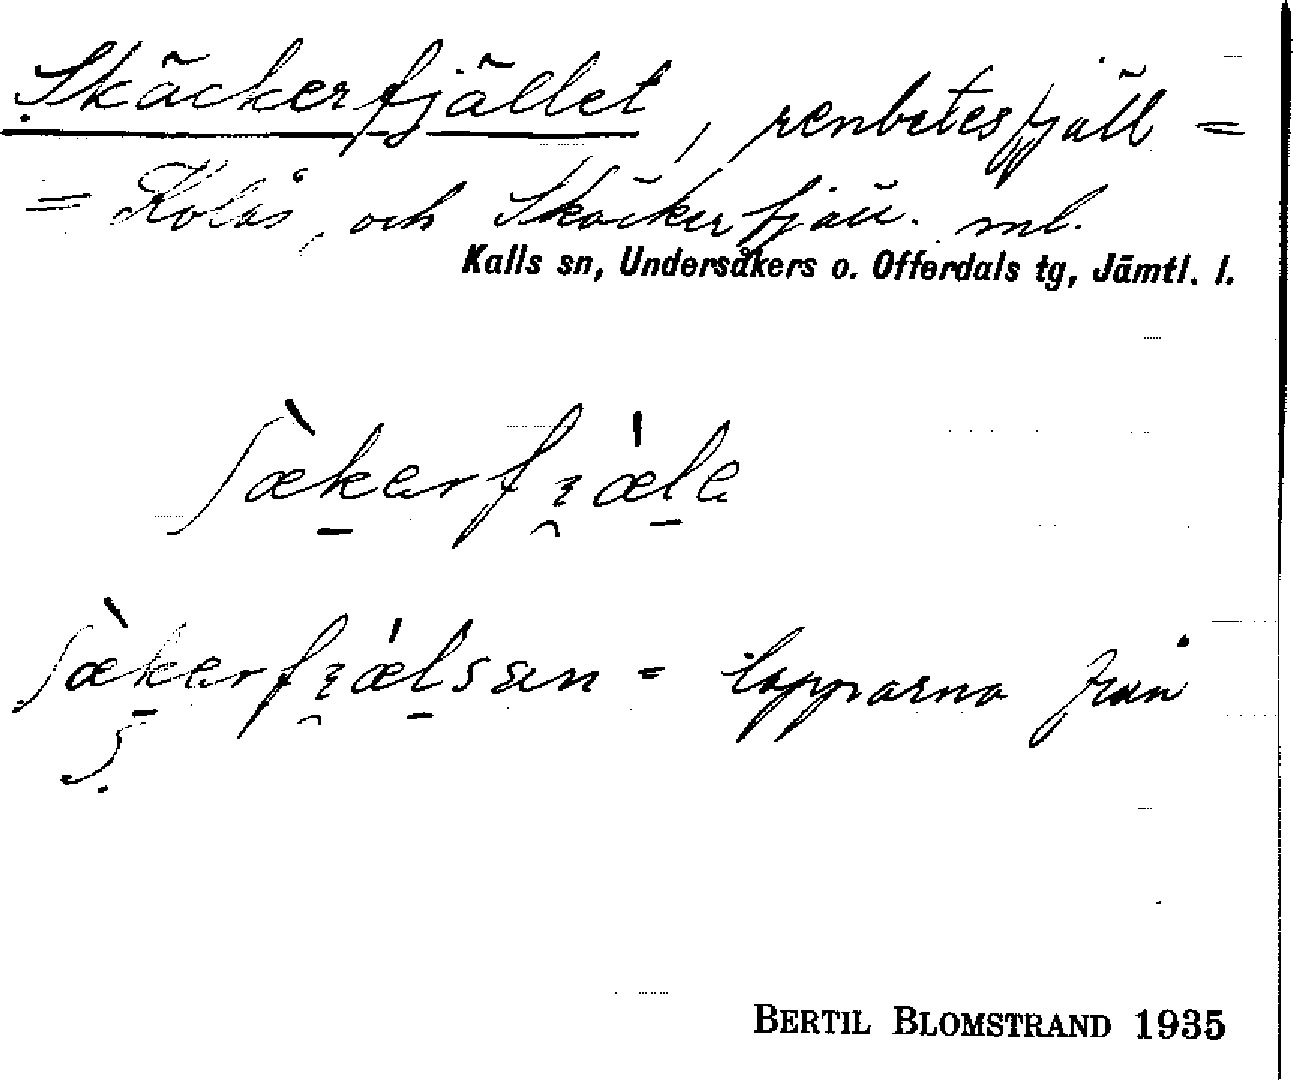 Skäckerfjället, renbetesfjäll =
= Kolås, och Skäckerfjäll. ml.
Kalls sn, Undersåkers o. Offerdals tg, Jämtl. l.
= lapparna från
BERTIL BLOMSTRAND 1935